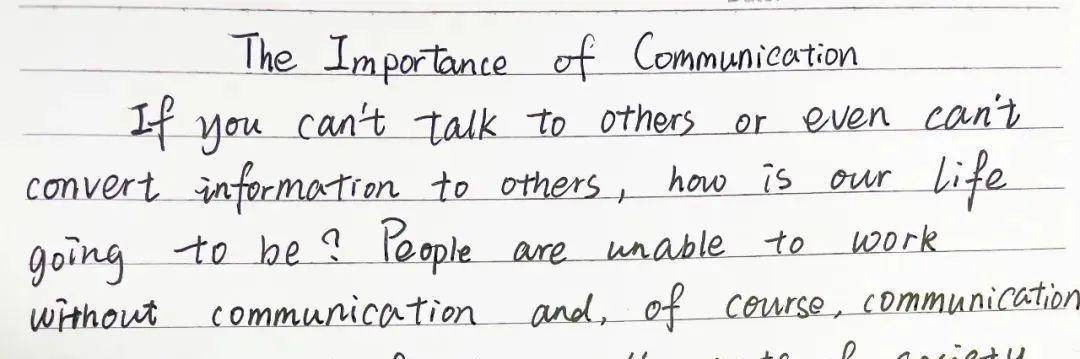 The Importance of Communication
If you can't talk to others or even can't
convert information to others, how is our life
going to be? People are unable to work
without communication and, of course, communication